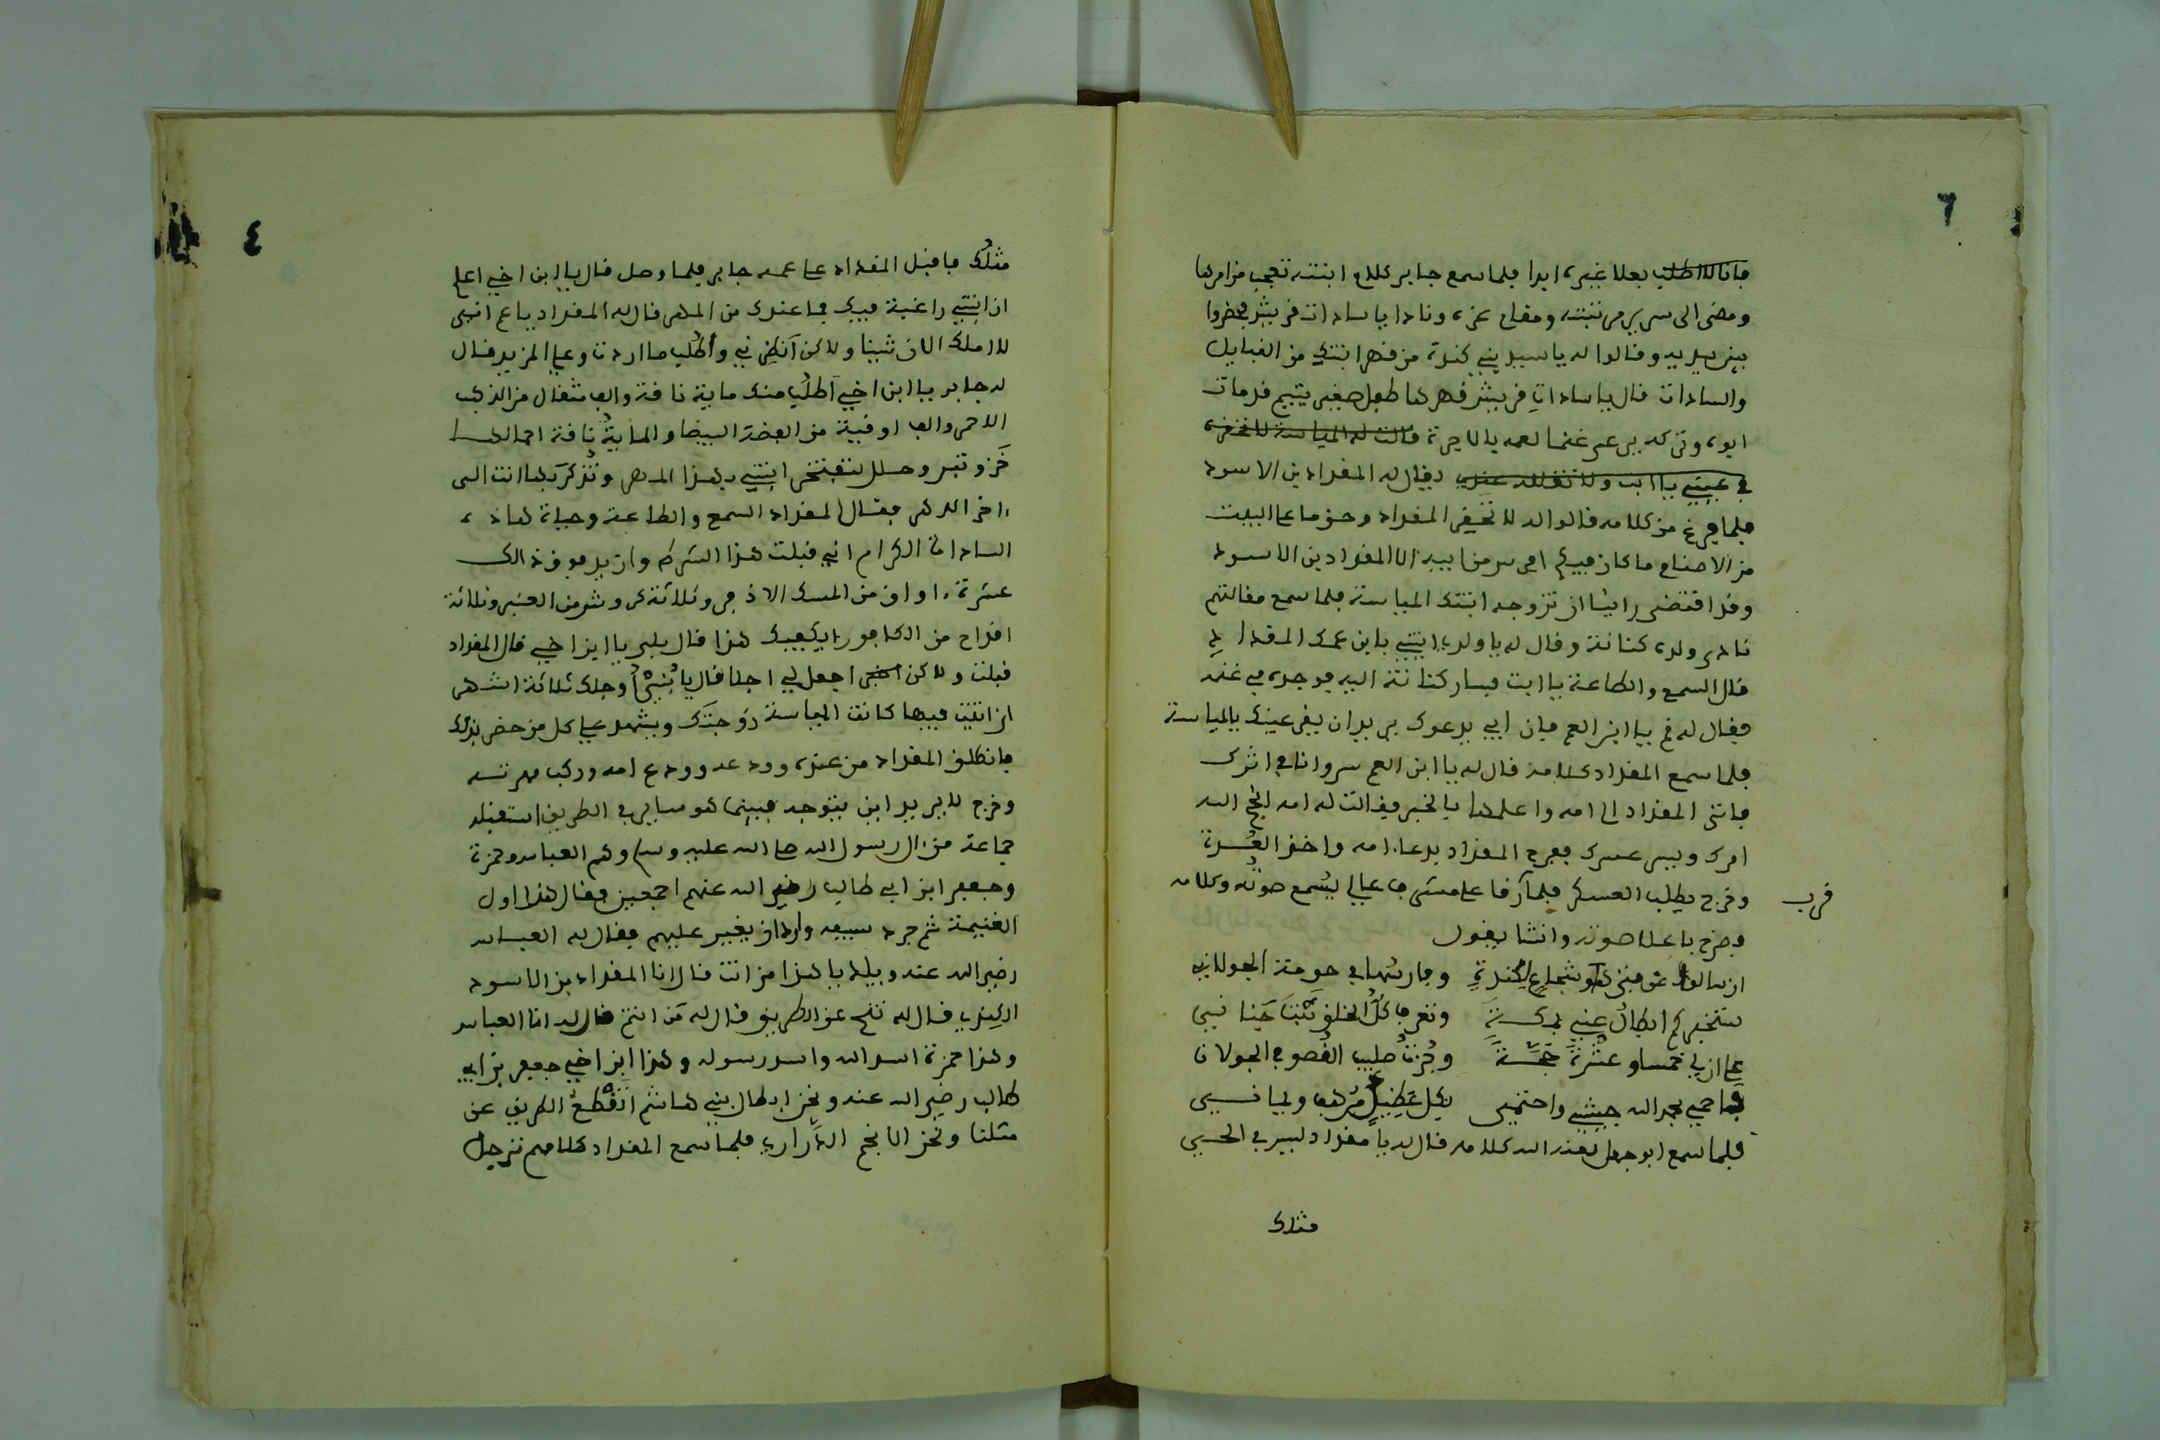 ٦
فانا لا اطلب بعلا غيره ابدا فلما سمع جابر كلام ابنته تعجب من امرها
ومضى الى سرير مرتبته ومقام عزه ونادا يا سادات قريش فحضروا
بين يديه وقالوا له يا سيد بني كندة من قهر ابنتك من القبايل
والسادات قال يا ساداتِ قريش قهرها طفل صغير يتيم قد مات
ابوه وتركه يرعى غنما لعمه بالاجرة قالت له المياسة لا تحقره
في عيني يا ابت ولا تقلله عندي يقال له المقداد بن الاسود
فلما فرغ من كلامه قالوا له لا تحقر المقداد وحق ما على البيت
من الاصنام ما كان فيكم افرس من ابيه الا المقداد بن الاسود
وقد اقتضى راينا ان تزوجه ابنتك المياسة فلما سمع مقالتهم
نادى ولده كنانة وقال له يا ولدي ايتني بابن عمك المقداد
قال السمع والطاعة يا ابت فسار كنانة اليه فوجده في غنمه
فقال له قم يا ابن العم فان ابي يدعوك يريد ان يقر عينك بالمياسة
فلما سمع المقداد كلامه قال له يا ابن العم سر وانا في اثرك
فاتى المقداد الى امه واعلمها بالخبر فقالت له امه انجح الله
امرك ويسر عسرك ففرح المقداد بدعاء امه واخذ العُدة
وخرج يطلب العسكر فلما رقا على مشرف عالي ليسمع صوته وكلامه
قرب
وصرخ باعلا صوته وانشا يقول
ان سالوا عن منزلي وشجاع كندةٍ وفارسها في حومة الجولاني
ستخبركم ابطال عني لدى وتعرف كل الخلق
على ان لي خمسا و عشرة حجة وجُزتُ صليب القصو في الجولان
فيا حيي بحر الله جيشي واحتمى بكل
فلما سمع ابو جهل لعنه الله كلامه قال له يا مقداد ليس في الحي
مثلك
٤
مثلك فاقبل المقداد على عمه جابر فلما وصل قال يا ابن اخي اعلم
ان ابنتي راغبة فيك فما عندك من المهر قال له المقداد يا عم انني
لا املك الان شيئا ولاكن أنظرني وأطلب ما اردت وعلي المزيد فقال
له جابر يا ابن اخي أطلب منك ماية ناقة والف مثقال من الذهب
الاحمر والف اوقية من الفضة البيضا والماية ناقة احمالها
خز وتبر وحلل لتفتخر ابنتي بهذا المهر وتذكر بها انت الى
اخر الدهر فقال المقداد السمع والطاعة وحياة هاذه
السادات الكرام اني قبلت هذا الشرط وازيد فوق ذالك
عشرة اواق من المسك الاذفر وثلاثة من العنبر وثلاثة
اقداح من الكافور ايكفيك هذا قال بلى يا ابن اخي قال المقداد
قبلت ولاكن اجعل لي اجلا فال يا بُنيّ اجلك ثلاثة اشهر
ان اتيت فيها كانت المياسة زوجتَك ويشهد علي كل من حضر بذلك
فانطلق المقداد من عنده وودعه وودع امه وركب مهرته
وخرج لا يريد اين يتوجه فبينما هو ساير في الطريق استقبله
جماعة من ال رسول الله صلى الله عليه وسلم وهم العباس وحمزة
وجعفر ابن ابي طالب رضي الله عنهم اجمعين فقال هذا اول
الغنيمة ثم جرد سيفه واراد ان يغير عليهم فقال له العباس
رضي الله عنه ويلك يا هذا من انت قال انا المقداد بن الاسود
الكندي قال له تنح عن الطريق قال له مَن انتم قال له انا العباس
وهذا حمزة اسد الله واسد رسوله وهذا ابن اخي جعفر بن ابي
طالب رضي الله عنه ونحن ابطال بني هاشم اتقطع الطريق عن
مثلنا ونحن الانجم الدَّراري فلما سمع المقداد كلامهم ترجل